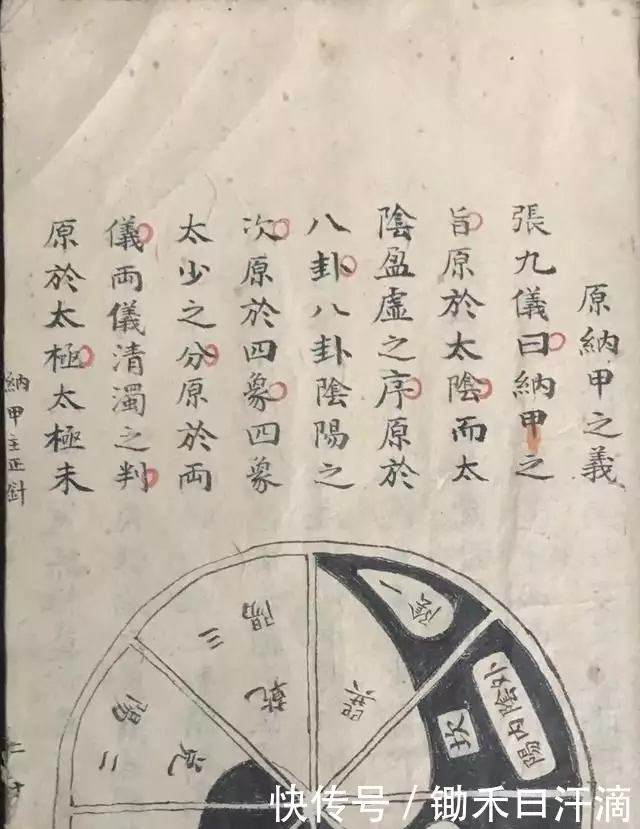 原納甲之義
張九儀曰納甲之
旨原於太陰而太
陰盈虛之序原於
八卦八卦陰陽之
次原於四象四象
太少之分原於両
儀両儀清濁之判
原於太極太極未
納甲主正針
陰一
巽
陽內陰外
坎
陽三
乾
陽二
兌
快传号/锄禾曰汗滴